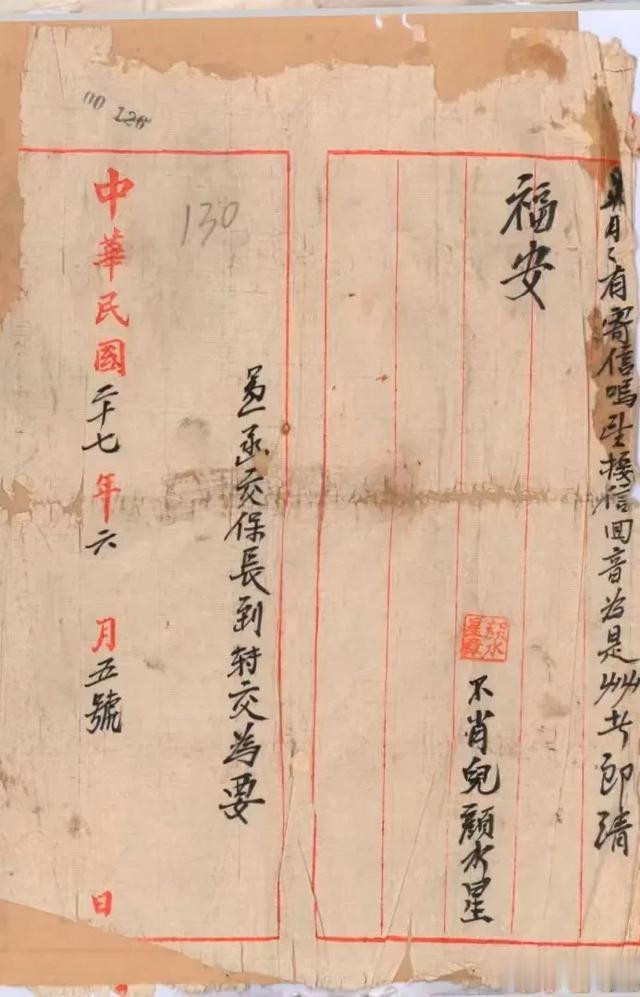 月々有寄信嗎望接信回音为是艸艸即請
福安
不肖兒顏水星
函交保長到轉交為要
中華民國二十七年六月五號日
130
00 126